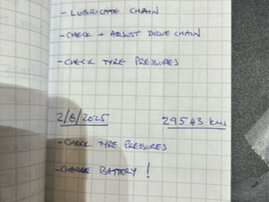 - LUBRICATE CHAIN
- CHECK + ADJUST DRIVE CHAIN
- CHECK TYRE PRESSURES
2/8/2025 29543 kms
- CHECK TYRE PRESSURES
- CHARGE BATTERY !